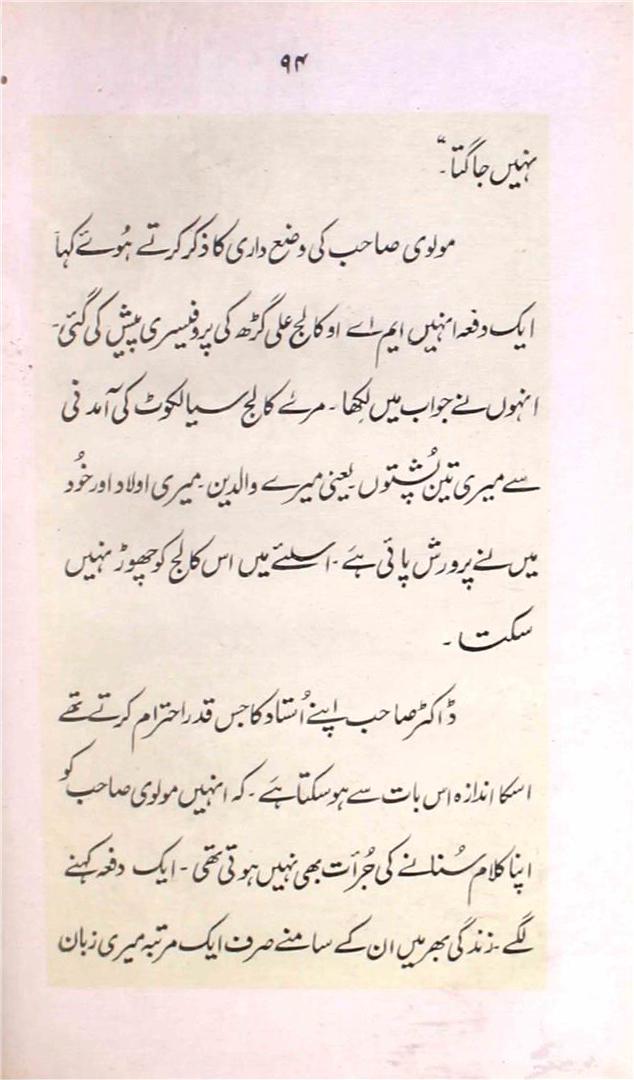 ۹۴
نہیں جاگتا۔"
مولوی صاحب کی وضع داری کا ذکر کرتے ہُوئے کہا
ایک دفعہ انہیں ایم اے او کالج علی گڑھ کی پروفیسری پیش کی گئی۔
انہوں نے جواب میں لکھا۔ مرے کالج سیالکوٹ کی آمدنی
سے میری تین پُشتوں۔ یعنی میرے والدین۔ میری اولاد اور خُود
میں نے پرورش پائی ہے۔ اسلئے میں اس کالج کو چھوڑ نہیں
سکتا۔
ڈاکٹر صاحب اپنے اُستاد کا جس قدر احترام کرتے تھے
اسکا اندازہ اس بات سے ہو سکتا ہے۔ کہ انہیں مولوی صاحب کو
اپنا کلام سُنانے کی جُرأت بھی نہیں ہوتی تھی۔ ایک دفعہ کہنے
لگے۔ زندگی بھر میں ان کے سامنے صرف ایک مرتبہ میری زبان